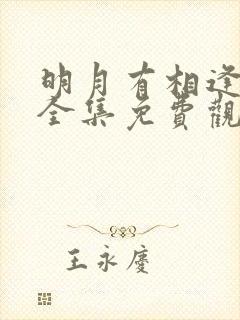 明月有相逢
全集免費觀
王永慶